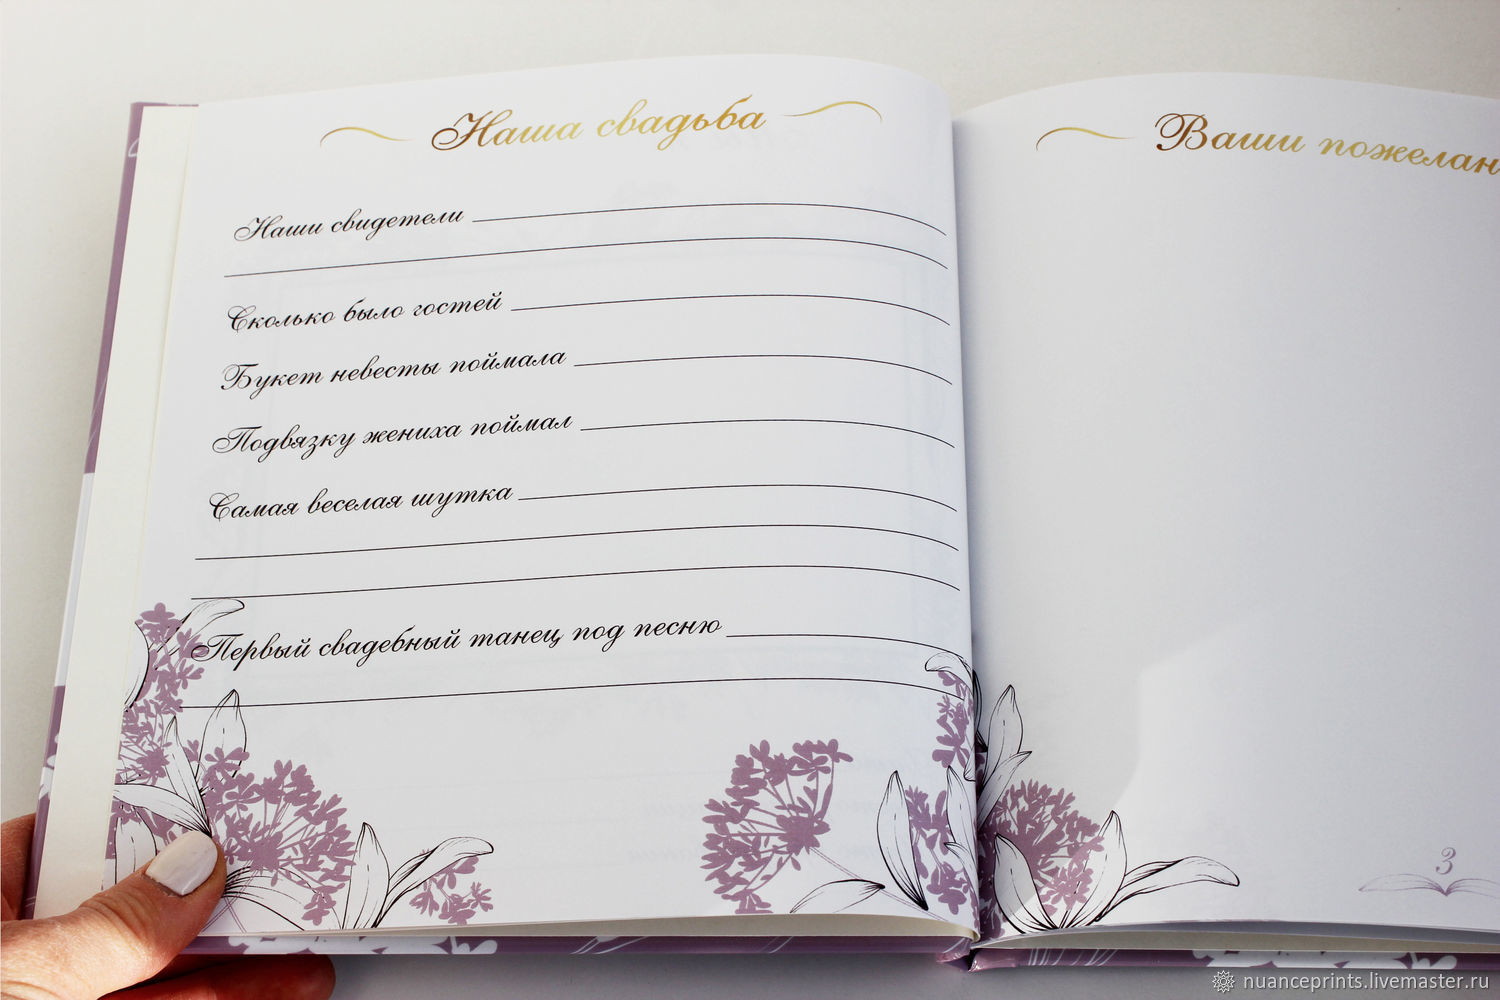 Наша свадьба
Наши свидетели
Сколько было гостей
Букет невесты поймала
Подвязку жениха поймал
Самая веселая шутка
Первый свадебный танец под песню
Ваши пожелан
3
nuanceprints.livemaster.ru